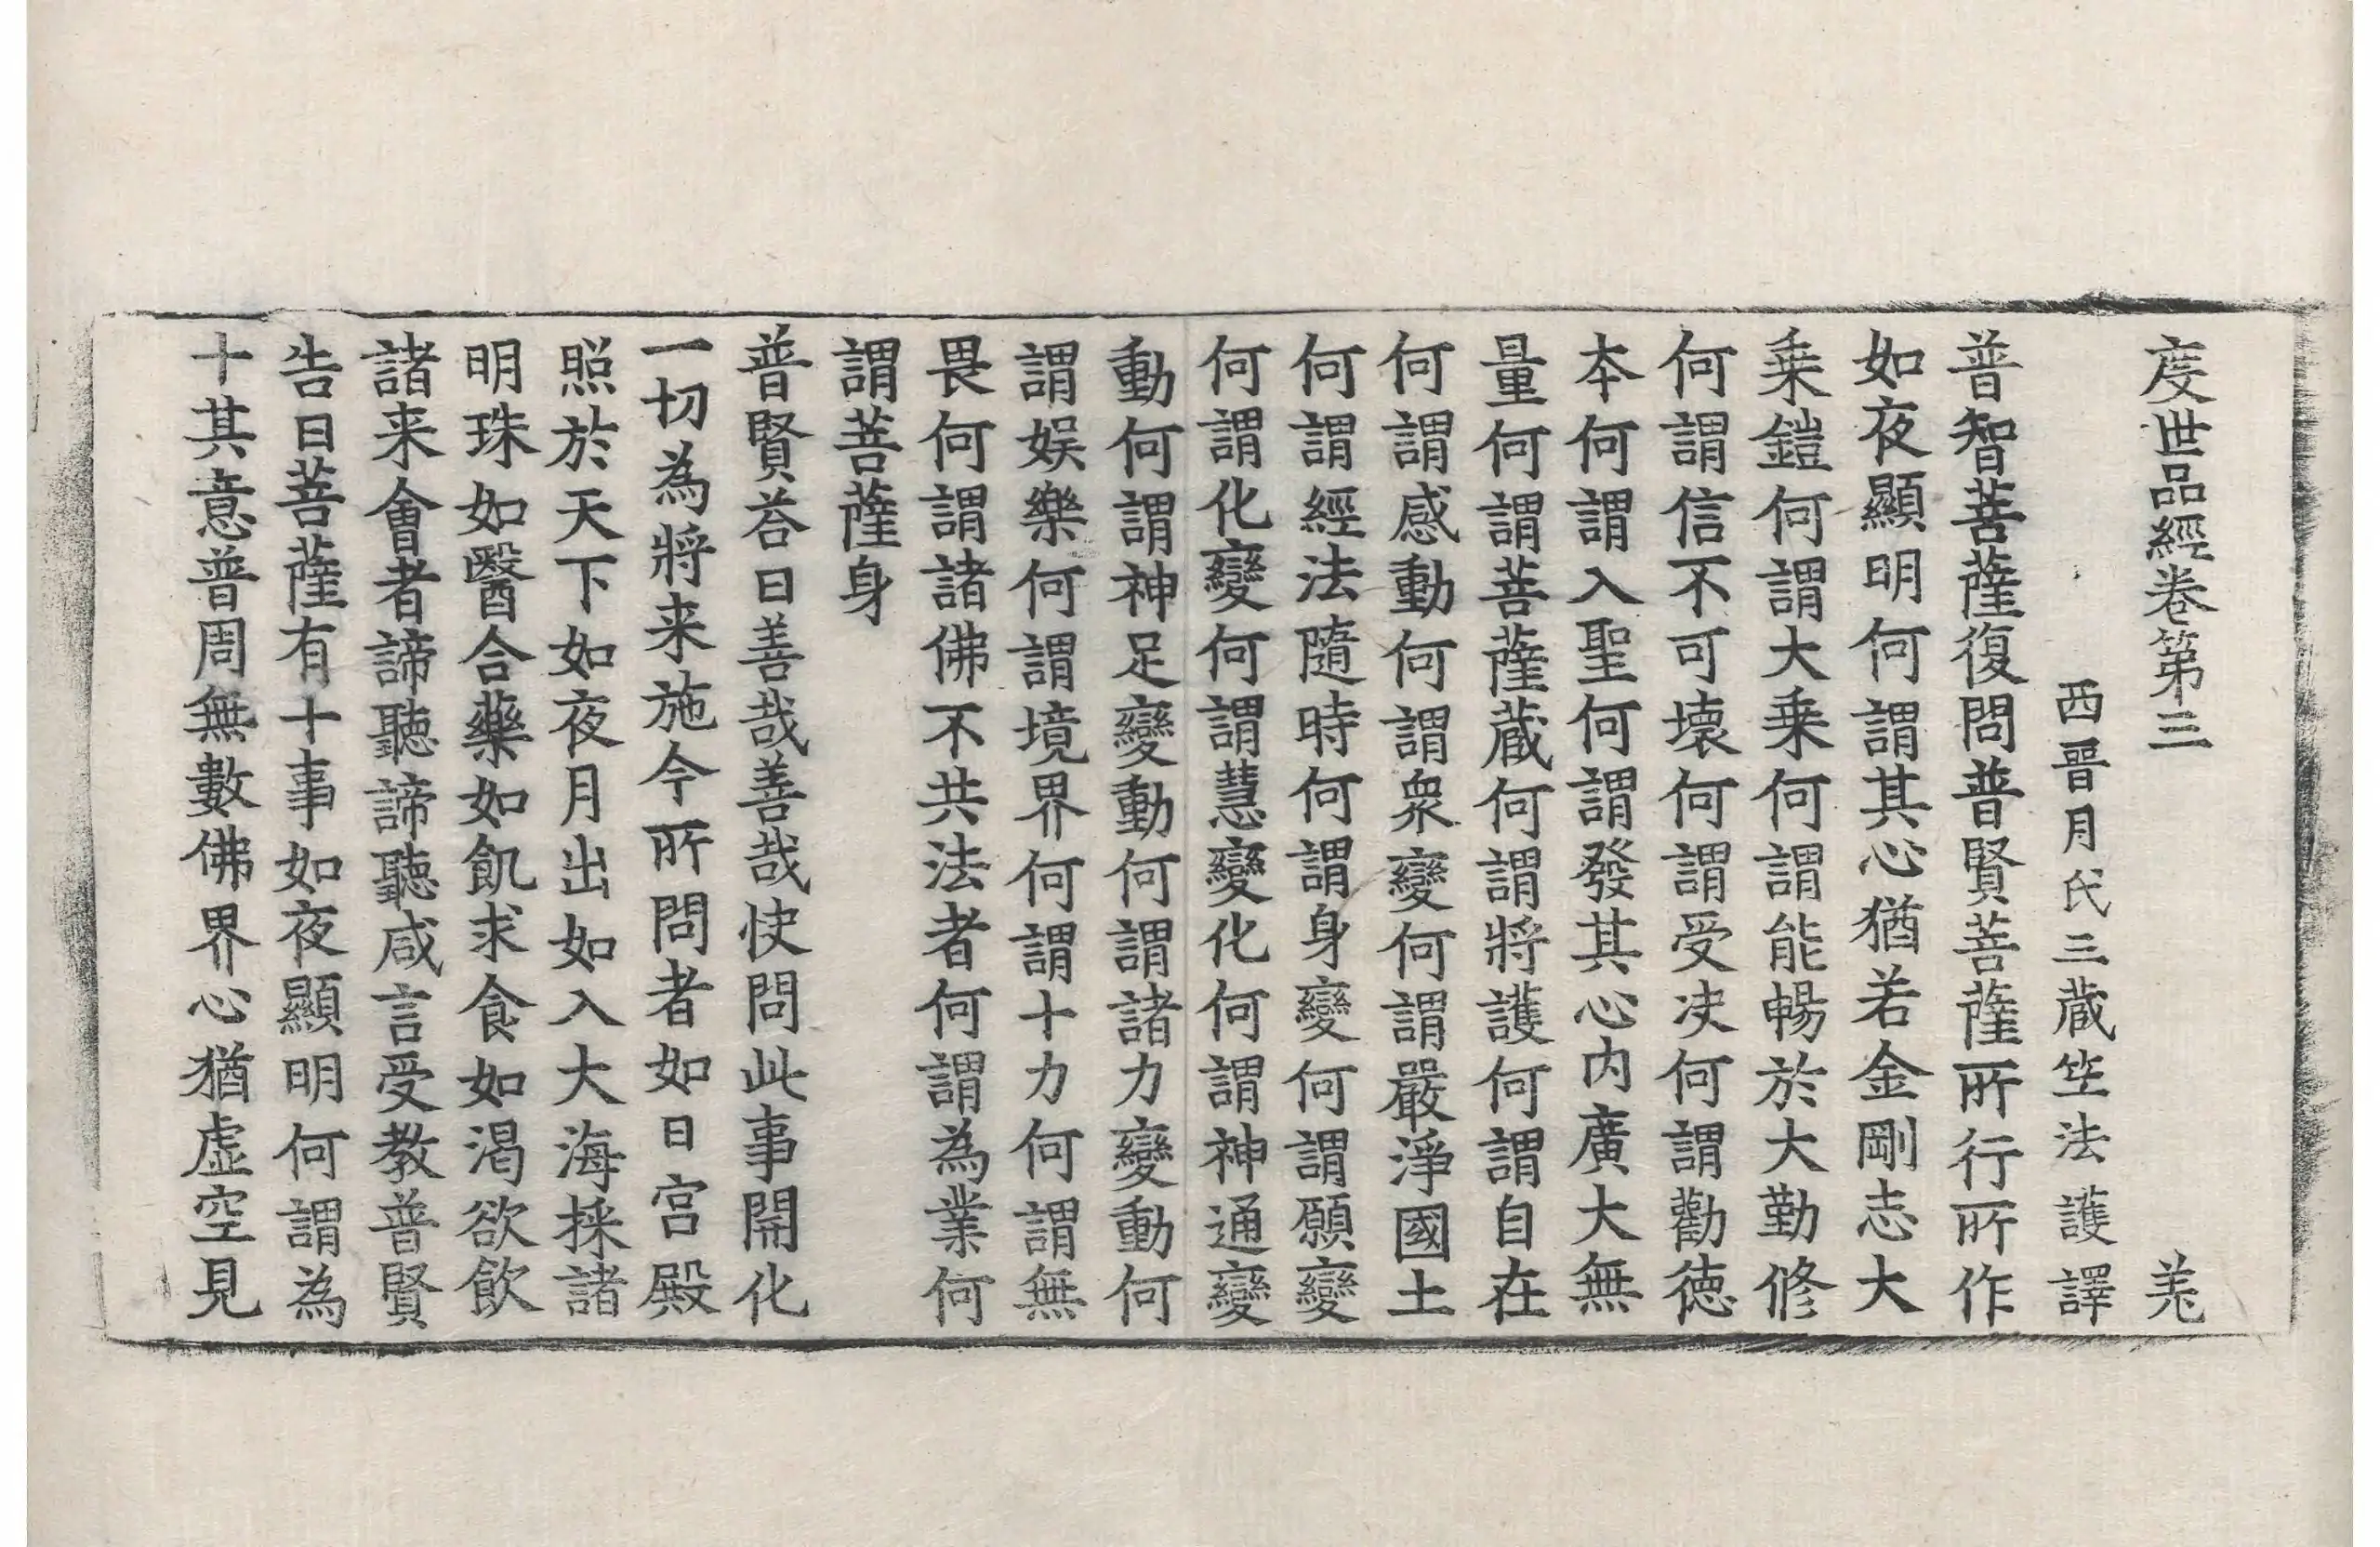 度世品經卷第三 羌
西晉月氏三藏竺法護譯
普智菩薩復問普賢菩薩所行所作
如夜顯明何謂其心猶若金剛志大
乗鎧何謂大乗何謂能暢於大勤修
何謂信不可壊何謂受决何謂勸德
本何謂入聖何謂發其心内廣大無
量何謂菩薩藏何謂將護何謂自在
何謂感動何謂衆變何謂嚴淨國土
何謂經法隨時何謂身變何謂願變
何謂化變何謂慧變化何謂神通變
動何謂神足變動何謂諸力變動何
謂娛樂何謂境界何謂十力何謂無
畏何謂諸佛不共法者何謂為業何
謂菩薩身
普賢荅曰善哉善哉快問此事開化
一切為將来施今所問者如日宮殿
照於天下如夜月出如入大海採諸
明珠如醫合藥如飢求食如渴欲飲
諸来會者諦聽諦聽咸言受教普賢
告曰菩薩有十事如夜顯明何謂為
十其意普周無數佛界心猶虛空見